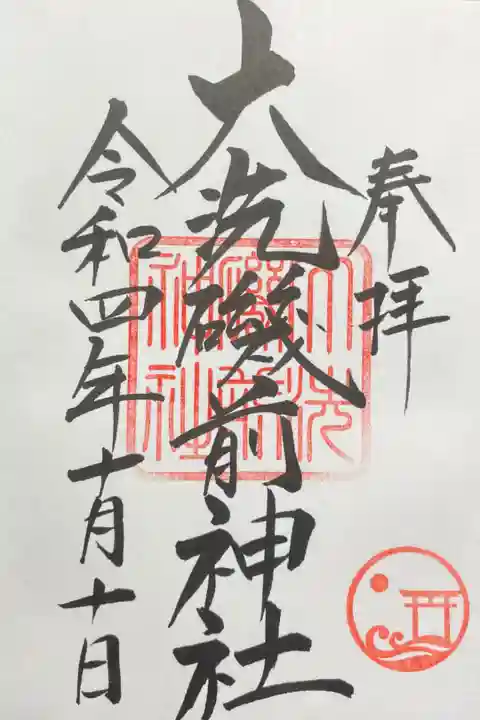 奉拝
大洗磯前神社
大洗
磯前
神社
令和四年十月十日